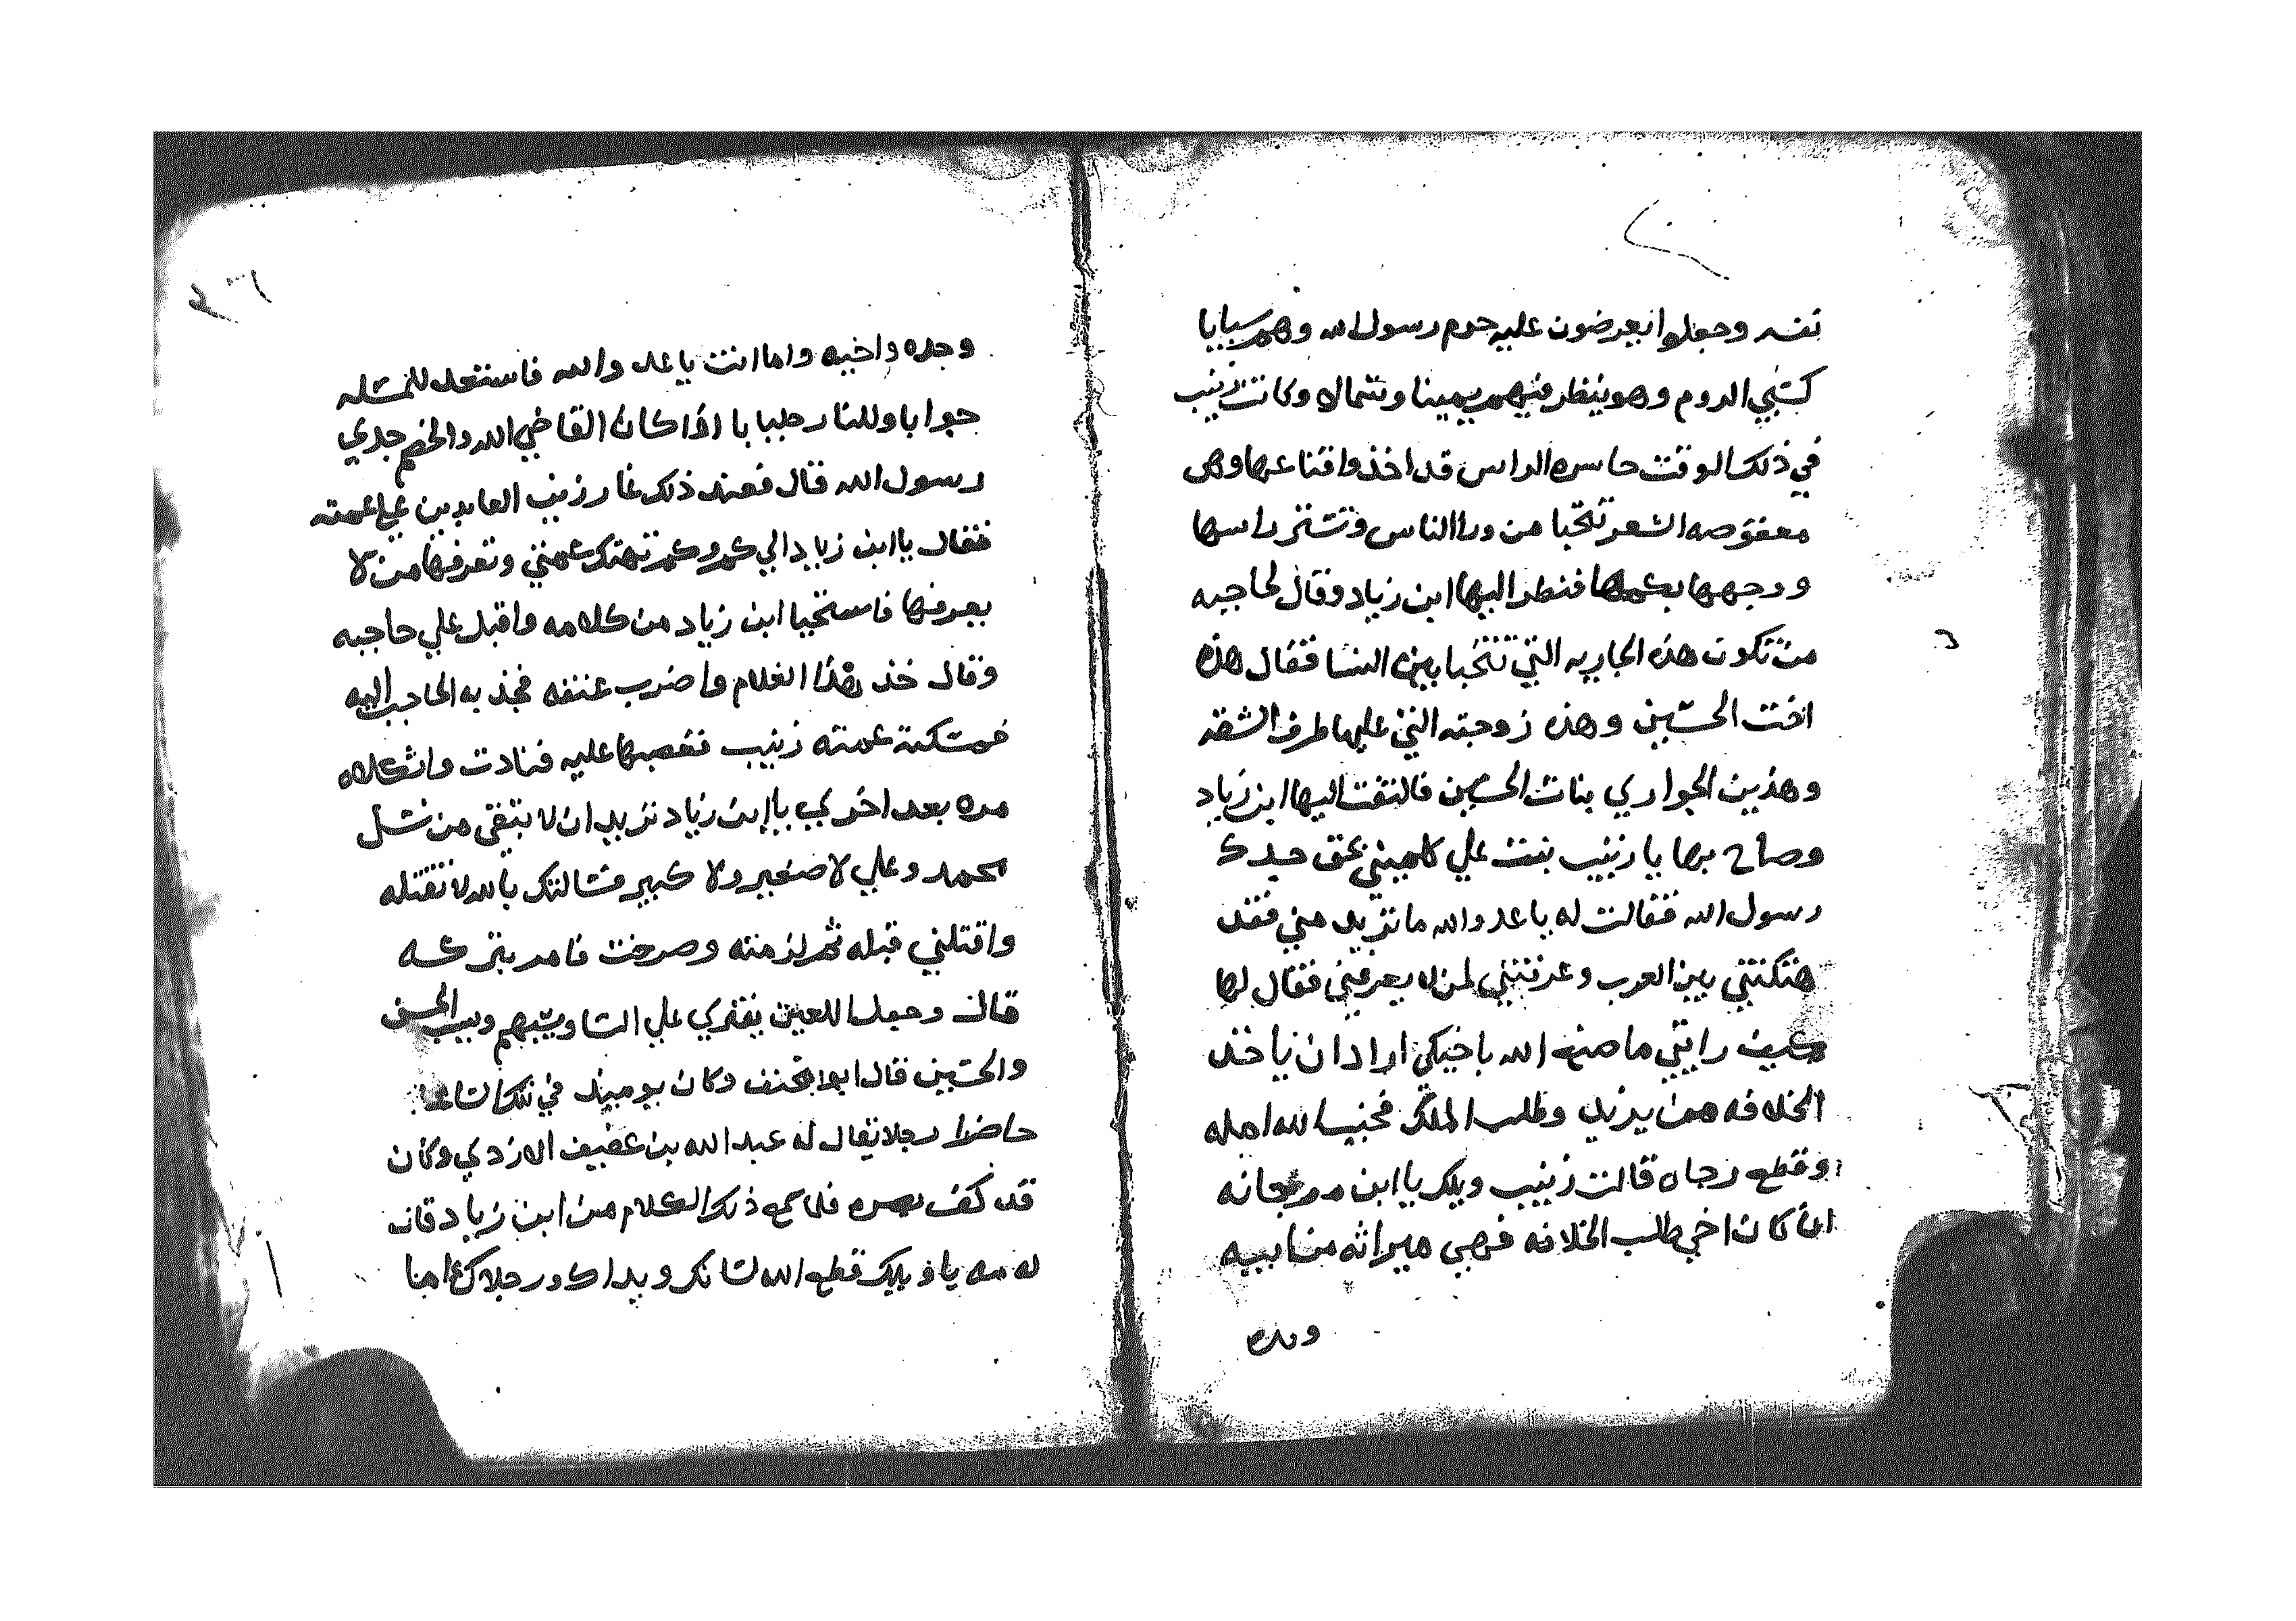 نفسه وجعلوا يعرضون عليه حرم رسول الله وهم سبايا
كسبي الروم وهو ينظر فيهم يمينا وشمالا وكانت زينب
في ذلك الوقت حاسره الراس قد اخذوا قناعها وهي
معقوصه الشعر تتخبا من ورا الناس وتستتر راسها
ووجهها بكمها فنظر اليها ابن زياد وقال لحاجبه
من تكون هذه الجاريه التي تتخبا بين النسا فقال هذه
اخت الحسين وهذه زوجته التي عليها طرف الشقه
وهذين الجواري بنات الحسين فالتفت اليها ابن زياد
وصاح بها يا زينب بنت علي كلميني بحق جدك
رسول الله فقالت له يا عدو الله ما تريد مني فقد
هتكتني بين العرب وعرفتني لمن لا يعرفني فقال لها
كيف رايتي ما صنع الله باخيكي اراد ان ياخذ
الخلافه من يزيد وطلب الملك فخيب الله امله
وقطع رجاه قالت زينب ويلك يا ابن مرجانه
ان كان اخي طلب الخلافه فهي ميراثه من ابيه
وجده
وجده واخيه واما انت يا عدو الله فاستعد للمسله
جوابا وللنار جلبابا اذا كان القاضي الله والخصم جدي
رسول الله قال فعند ذلك غار زين العابدين علي عمته
فقال يا ابن زياد الي كم وكم تهتك عمتي وتعرفها من لا
يعرفها فاستحيا ابن زياد من كلامه واقبل علي حاجبه
وقال خذ هذا الغلام واضرب عنقه فجذبه الحاجب اليه
فمسكته عمته زينب فنادت واثكلاه
مره بعد اخري يا ابن زياد تريد ان لا تبقي من نسل
محمد وعلي لا صغير ولا كبير فسالتك بالله لا تقتله
واقتلني قبله ثم لزمته وصرخت فامر بتركه
قال وجعل اللعين يفتري علي النسا ويسبهم ويسب الحسن
والحسين قال ابو مخنف وكان يوميذ في تلك الساعه
حاضرا رجلا يقال له عبد الله بن عفيف الازدي وكان
قد كف بصره فلما سمع ذلك الكلام من ابن زياد قال
له مه يا ويلك قطع الله لسانك ويداك ورجلاك